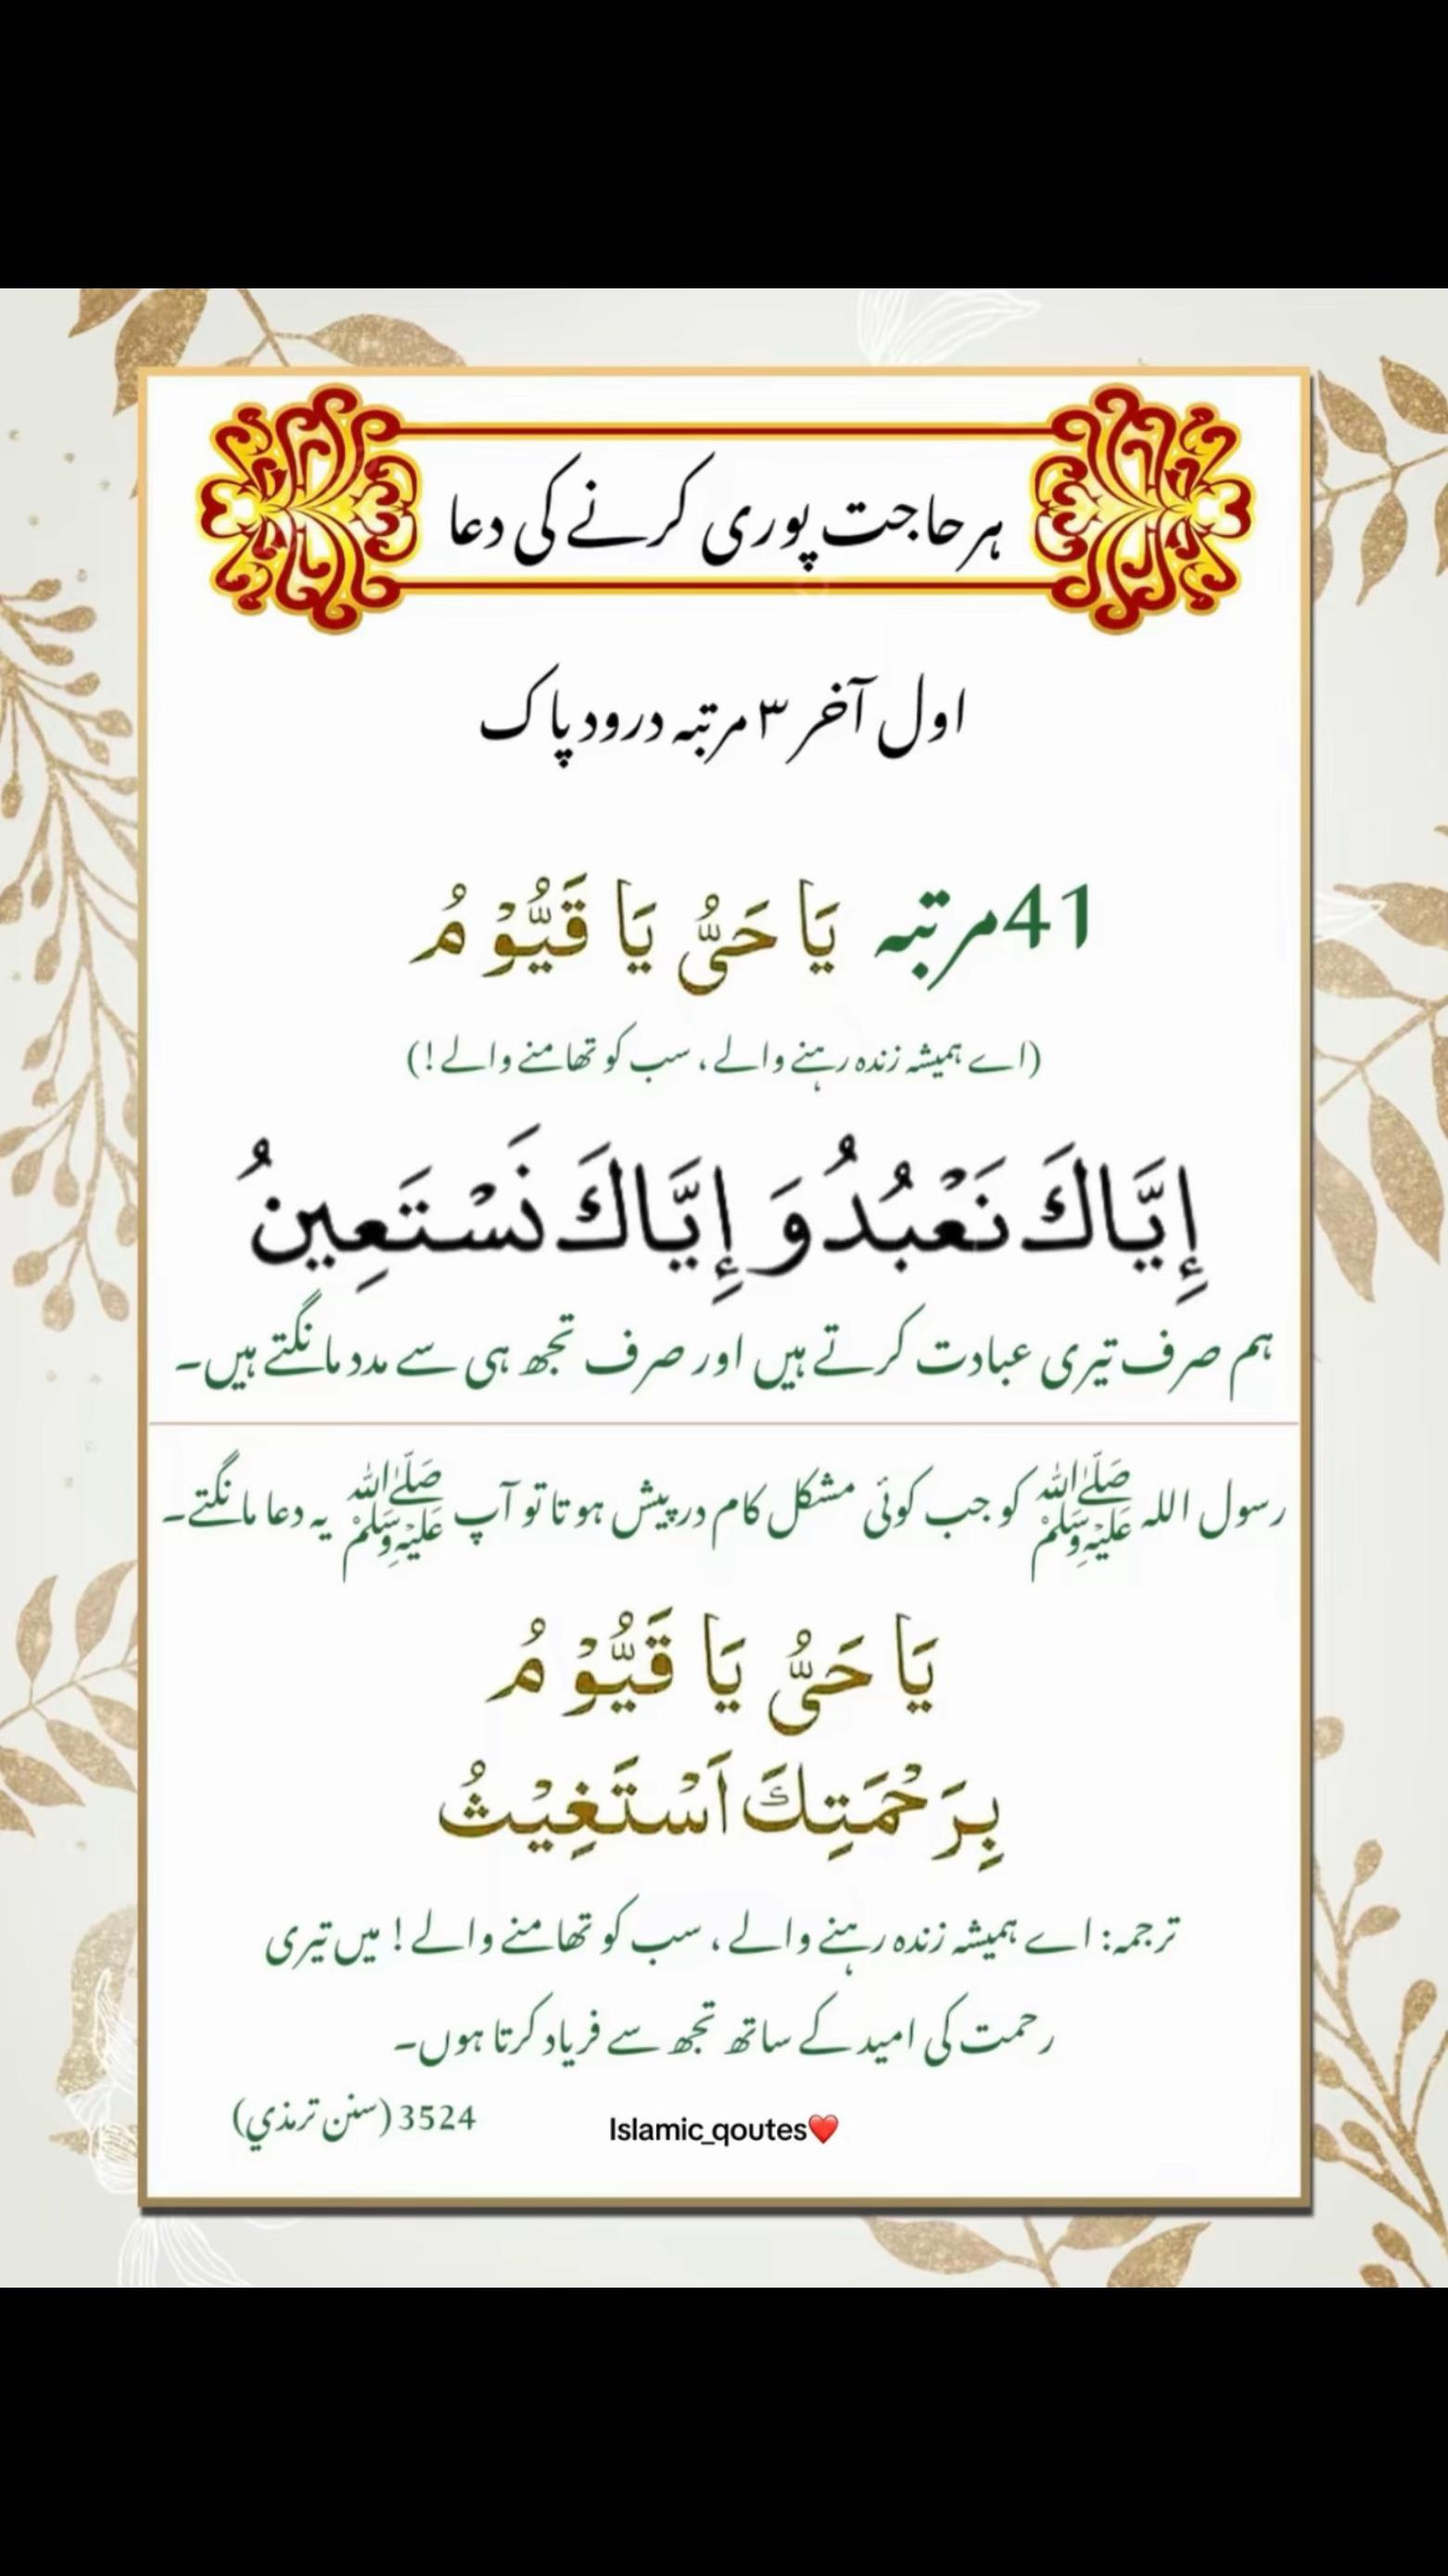 ہر حاجت پوری کرنے کی دعا
اول آخر ۳ مرتبہ درود پاک
41 مرتبہ يَا حَىُّ يَا قَيُّوْمُ
(اے ہمیشہ زندہ رہنے والے، سب کو تھامنے والے!)
إِيَّاكَ نَعْبُدُ وَإِيَّاكَ نَسْتَعِينُ
ہم صرف تیری عبادت کرتے ہیں اور صرف تجھ ہی سے مدد مانگتے ہیں۔
رسول اللہ ﷺ کو جب کوئی مشکل کام درپیش ہوتا تو آپ ﷺ یہ دعا مانگتے۔
يَا حَىُّ يَا قَيُّوْمُ
بِرَحْمَتِكَ اَسْتَغِيْثُ
ترجمہ: اے ہمیشہ زندہ رہنے والے، سب کو تھامنے والے! میں تیری
رحمت کی امید کے ساتھ تجھ سے فریاد کرتا ہوں۔
3524 (سنن ترمذي)
Islamic_qoutes❤️